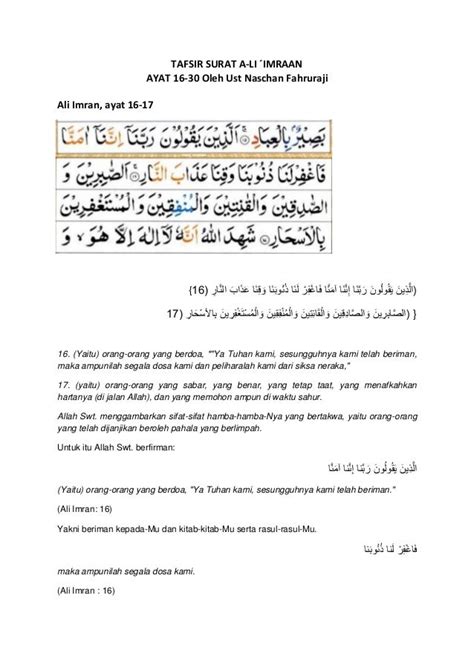 TAFSIR SURAT A-LI ´IMRAAN
AYAT 16-30 Oleh Ust Naschan Fahruraji
Ali Imran, ayat 16-17
بَصِيْرٌۢ بِالْعِبَادِ ۞ اَلَّذِيْنَ يَقُوْلُوْنَ رَبَّنَآ اِنَّنَآ اٰمَنَّا
فَاغْفِرْ لَنَا ذُنُوْبَنَا وَقِنَا عَذَابَ النَّارِ ۞ اَلصّٰبِرِيْنَ وَ
الصّٰدِقِيْنَ وَالْقٰنِتِيْنَ وَالْمُنْفِقِيْنَ وَالْمُسْتَغْفِرِيْنَ
بِالْاَسْحَارِ ۞ شَهِدَ اللّٰهُ اَنَّهٗ لَآ اِلٰهَ اِلَّا هُوَ ۙ وَ
(الَّذِينَ يَقُولُونَ رَبَّنَا إِنَّنَا آمَنَّا فَاغْفِرْ لَنَا ذُنُوبَنَا وَقِنَا عَذَابَ النَّارِ (16}
{ (الصَّابِرِينَ وَالصَّادِقِينَ وَالْقَانِتِينَ وَالْمُنْفِقِينَ وَالْمُسْتَغْفِرِينَ بِالأسْحَارِ (17
16. (Yaitu) orang-orang yang berdoa, ""Ya Tuhan kami, sesungguhnya kami telah beriman,
maka ampunilah segala dosa kami dan peliharalah kami dari siksa neraka,"
17. (yaitu) orang-orang yang sabar, yang benar, yang tetap taat, yang menafkahkan
hartanya (di jalan Allah), dan yang memohon ampun di waktu sahur.
Allah Swt. menggambarkan sifat-sifat hamba-hamba-Nya yang bertakwa, yaitu orang-orang
yang telah dijanjikan beroleh pahala yang berlimpah.
Untuk itu Allah Swt. berfirman:
الَّذِينَ يَقُولُونَ رَبَّنَا إِنَّنَا آمَنَّا
(Yaitu) orang-orang yang berdoa, "Ya Tuhan kami, sesungguhnya kami telah beriman."
(Ali Imran: 16)
Yakni beriman kepada-Mu dan kitab-kitab-Mu serta rasul-rasul-Mu.
فَاغْفِرْ لَنَا ذُنُوبَنَا
maka ampunilah segala dosa kami.
(Ali Imran : 16)